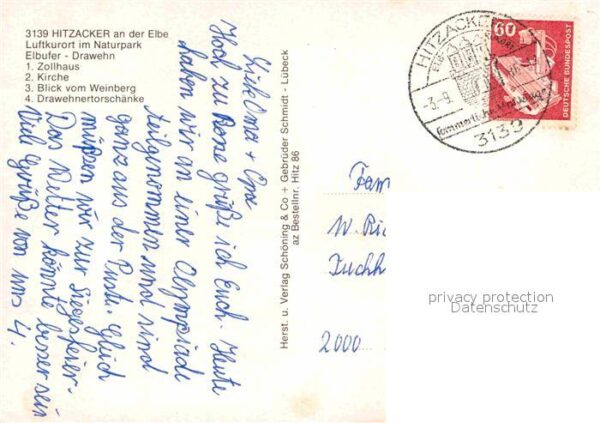 3139 HITZACKER an der Elbe
Luftkurort im Naturpark
Elbufer - Drawehn
1. Zollhaus
2. Kirche
3. Blick vom Weinberg
4. Drawehnertorschänke
Liebe Oma + Opa
Hoch zu Rosse grüße ich Euch. Heute
haben wir an einer Olympiade
teilgenommen und sind
ganz aus der Puste. Gleich
müßen wir zur Siegesfeier.
Das Wetter könnte besser sein
Viel Grüße von uns 4.
Herst. u. Verlag Schöning & Co + Gebrüder Schmidt - Lübeck
az Bestellnr. Hitz 86
HITZACKER
-3.-9.
3139
60
DEUTSCHE BUNDESPOST
Fam
W. Ric
Tuchh
2000
privacy protection
Datenschutz